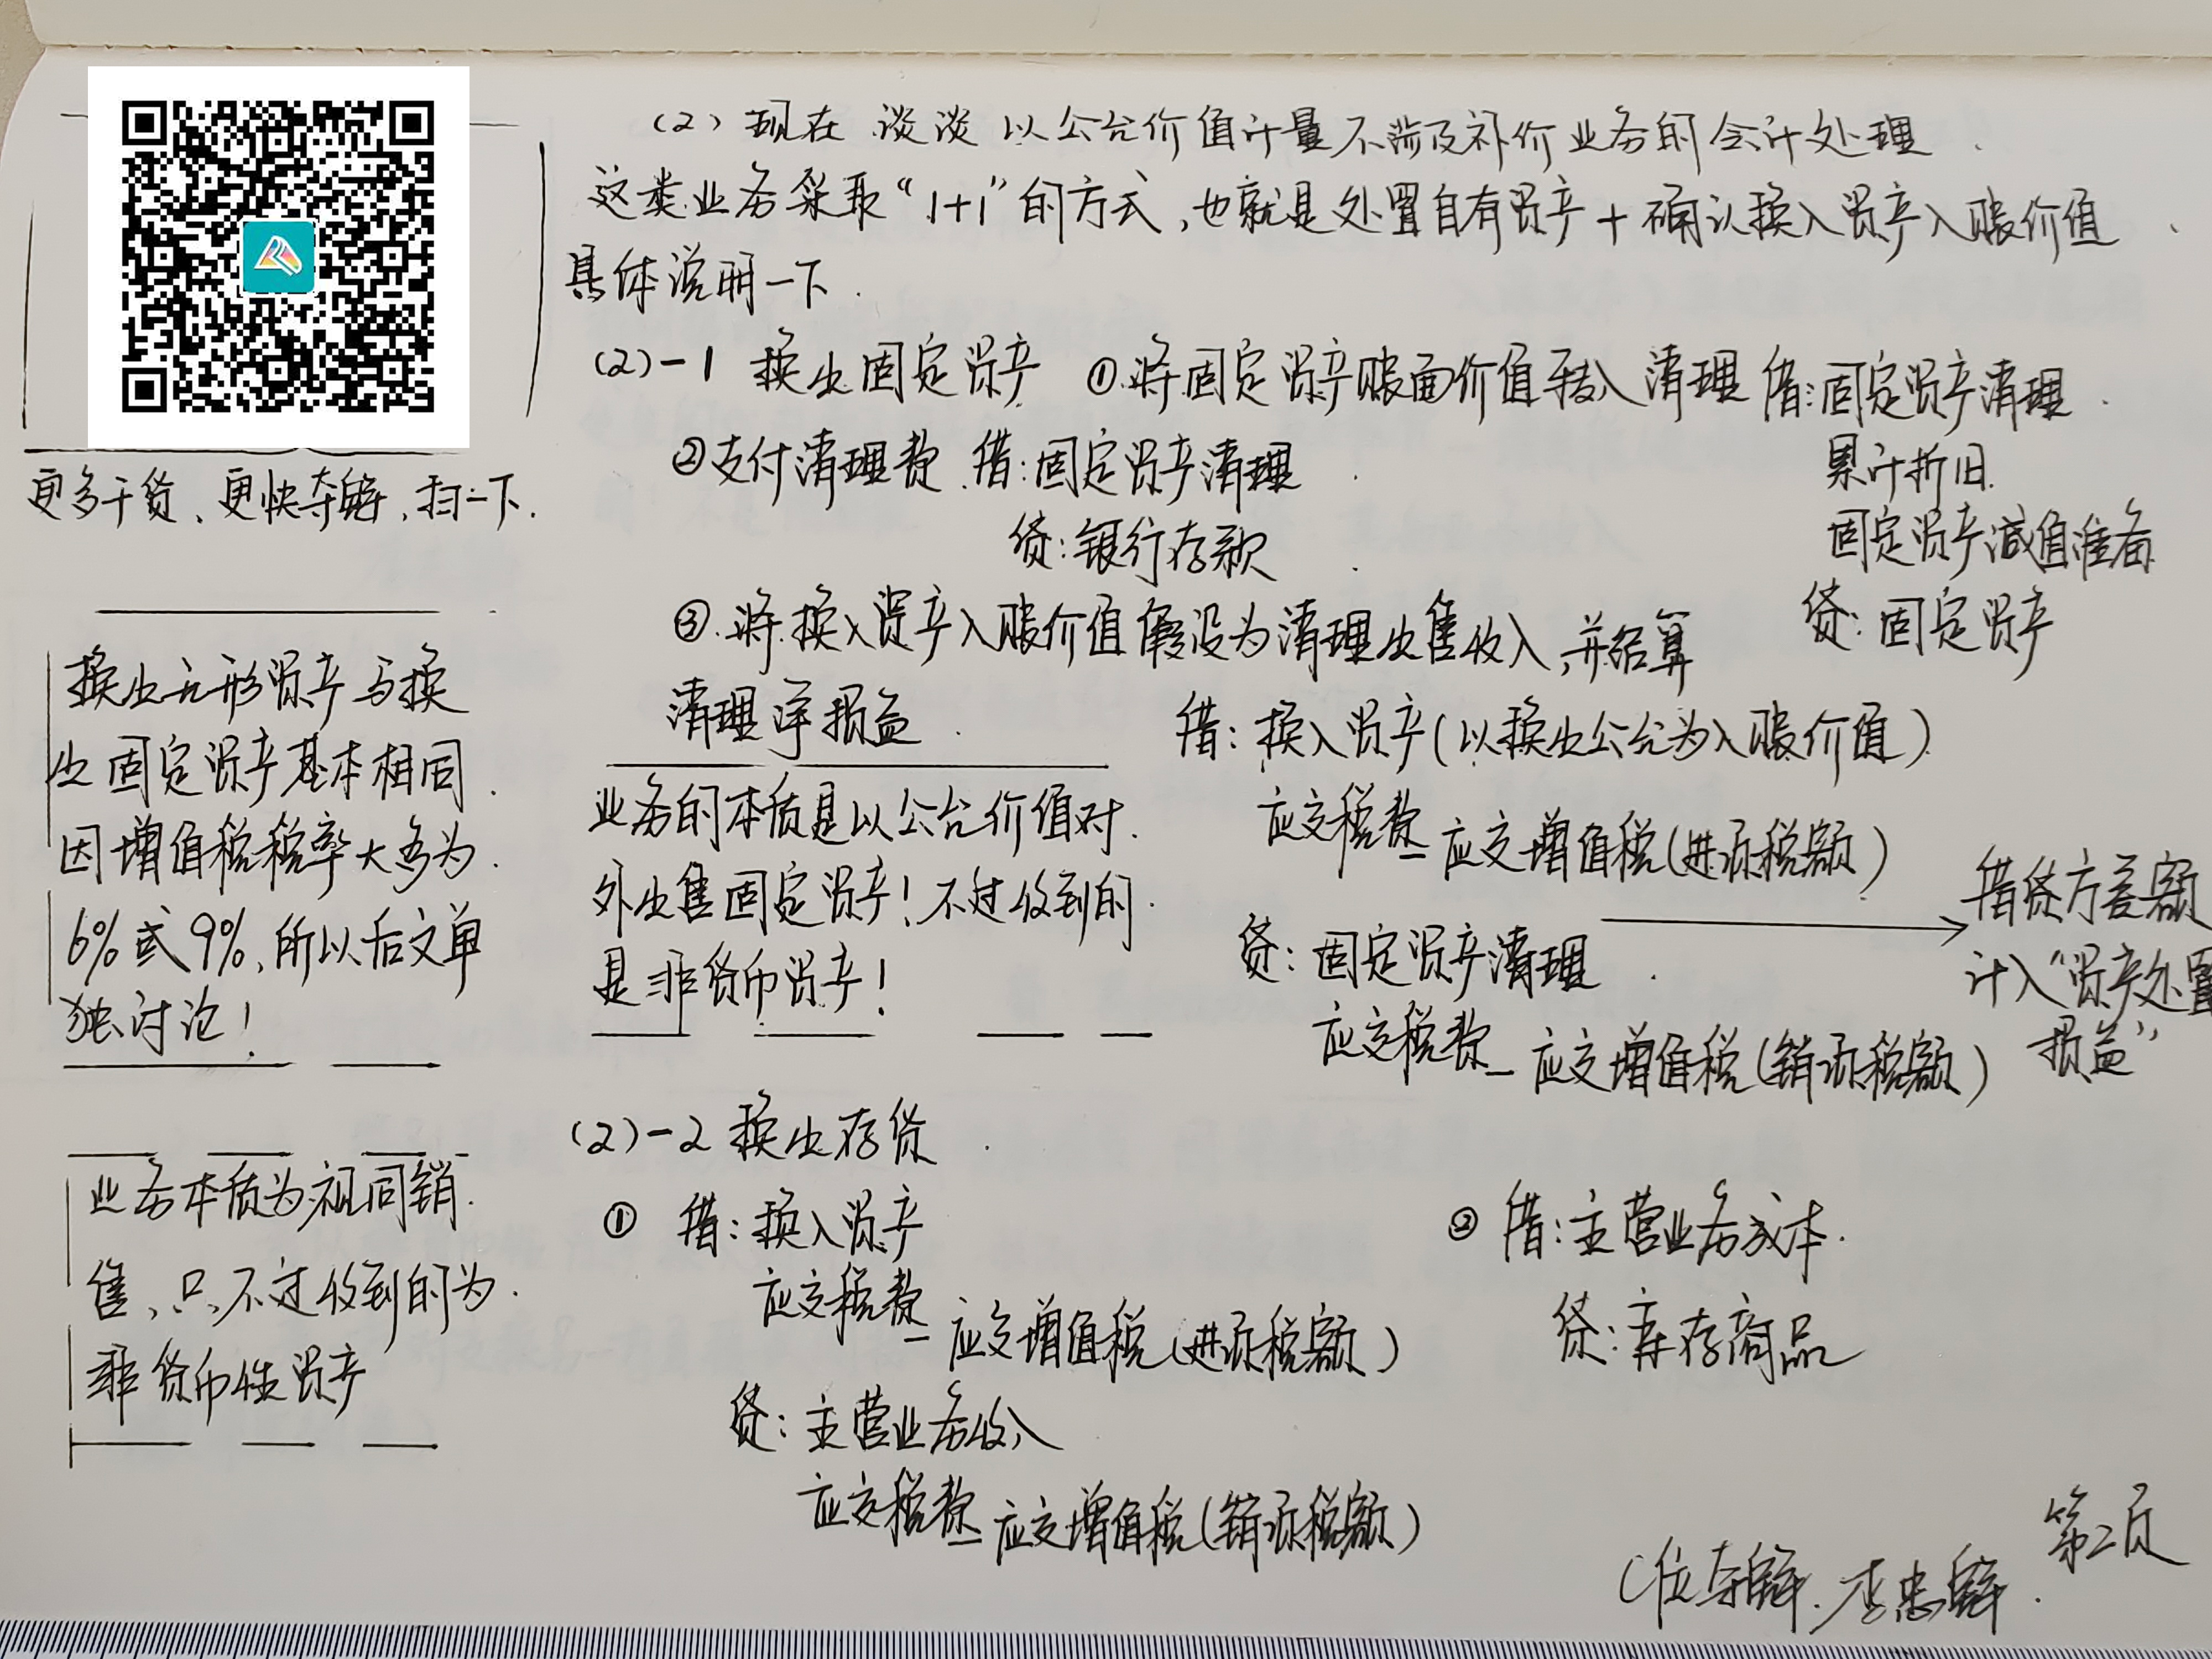 (2) 现在谈谈以公允价值计量不涉及补价业务的会计处理
这类业务采取“1+1”的方式,也就是处置自有资产+确认换入资产入账价值
具体说明一下.
(2)-1 换出固定资产 ①将固定资产账面价值转入清理 借:固定资产清理
累计折旧
固定资产减值准备
贷:固定资产
②支付清理费 借:固定资产清理
贷:银行存款
③将换入资产入账价值假设为清理出售收入,并结算
清理净损益
借:换入资产(以换出公允为入账价值)
应交税费–应交增值税(进项税额)
贷:固定资产清理
应交税费–应交增值税(销项税额)
借贷方差额
计入“资产处置
损益”
业务的本质是以公允价值对
外出售固定资产!不过收到的
是非货币资产!
更多干货、更快夺魁,扫一下.
换出无形资产与换
出固定资产基本相同
因增值税税率大多为
6%或9%,所以后文单
独讨论!
(2)-2 换出存货
① 借:换入资产
应交税费–应交增值税(进项税额)
贷:主营业务收入
应交税费–应交增值税(销项税额)
② 借:主营业务成本
贷:库存商品
业务本质为视同销
售,只不过收到的为
非货币性资产
第二页
C位夺魁.李忠魁.